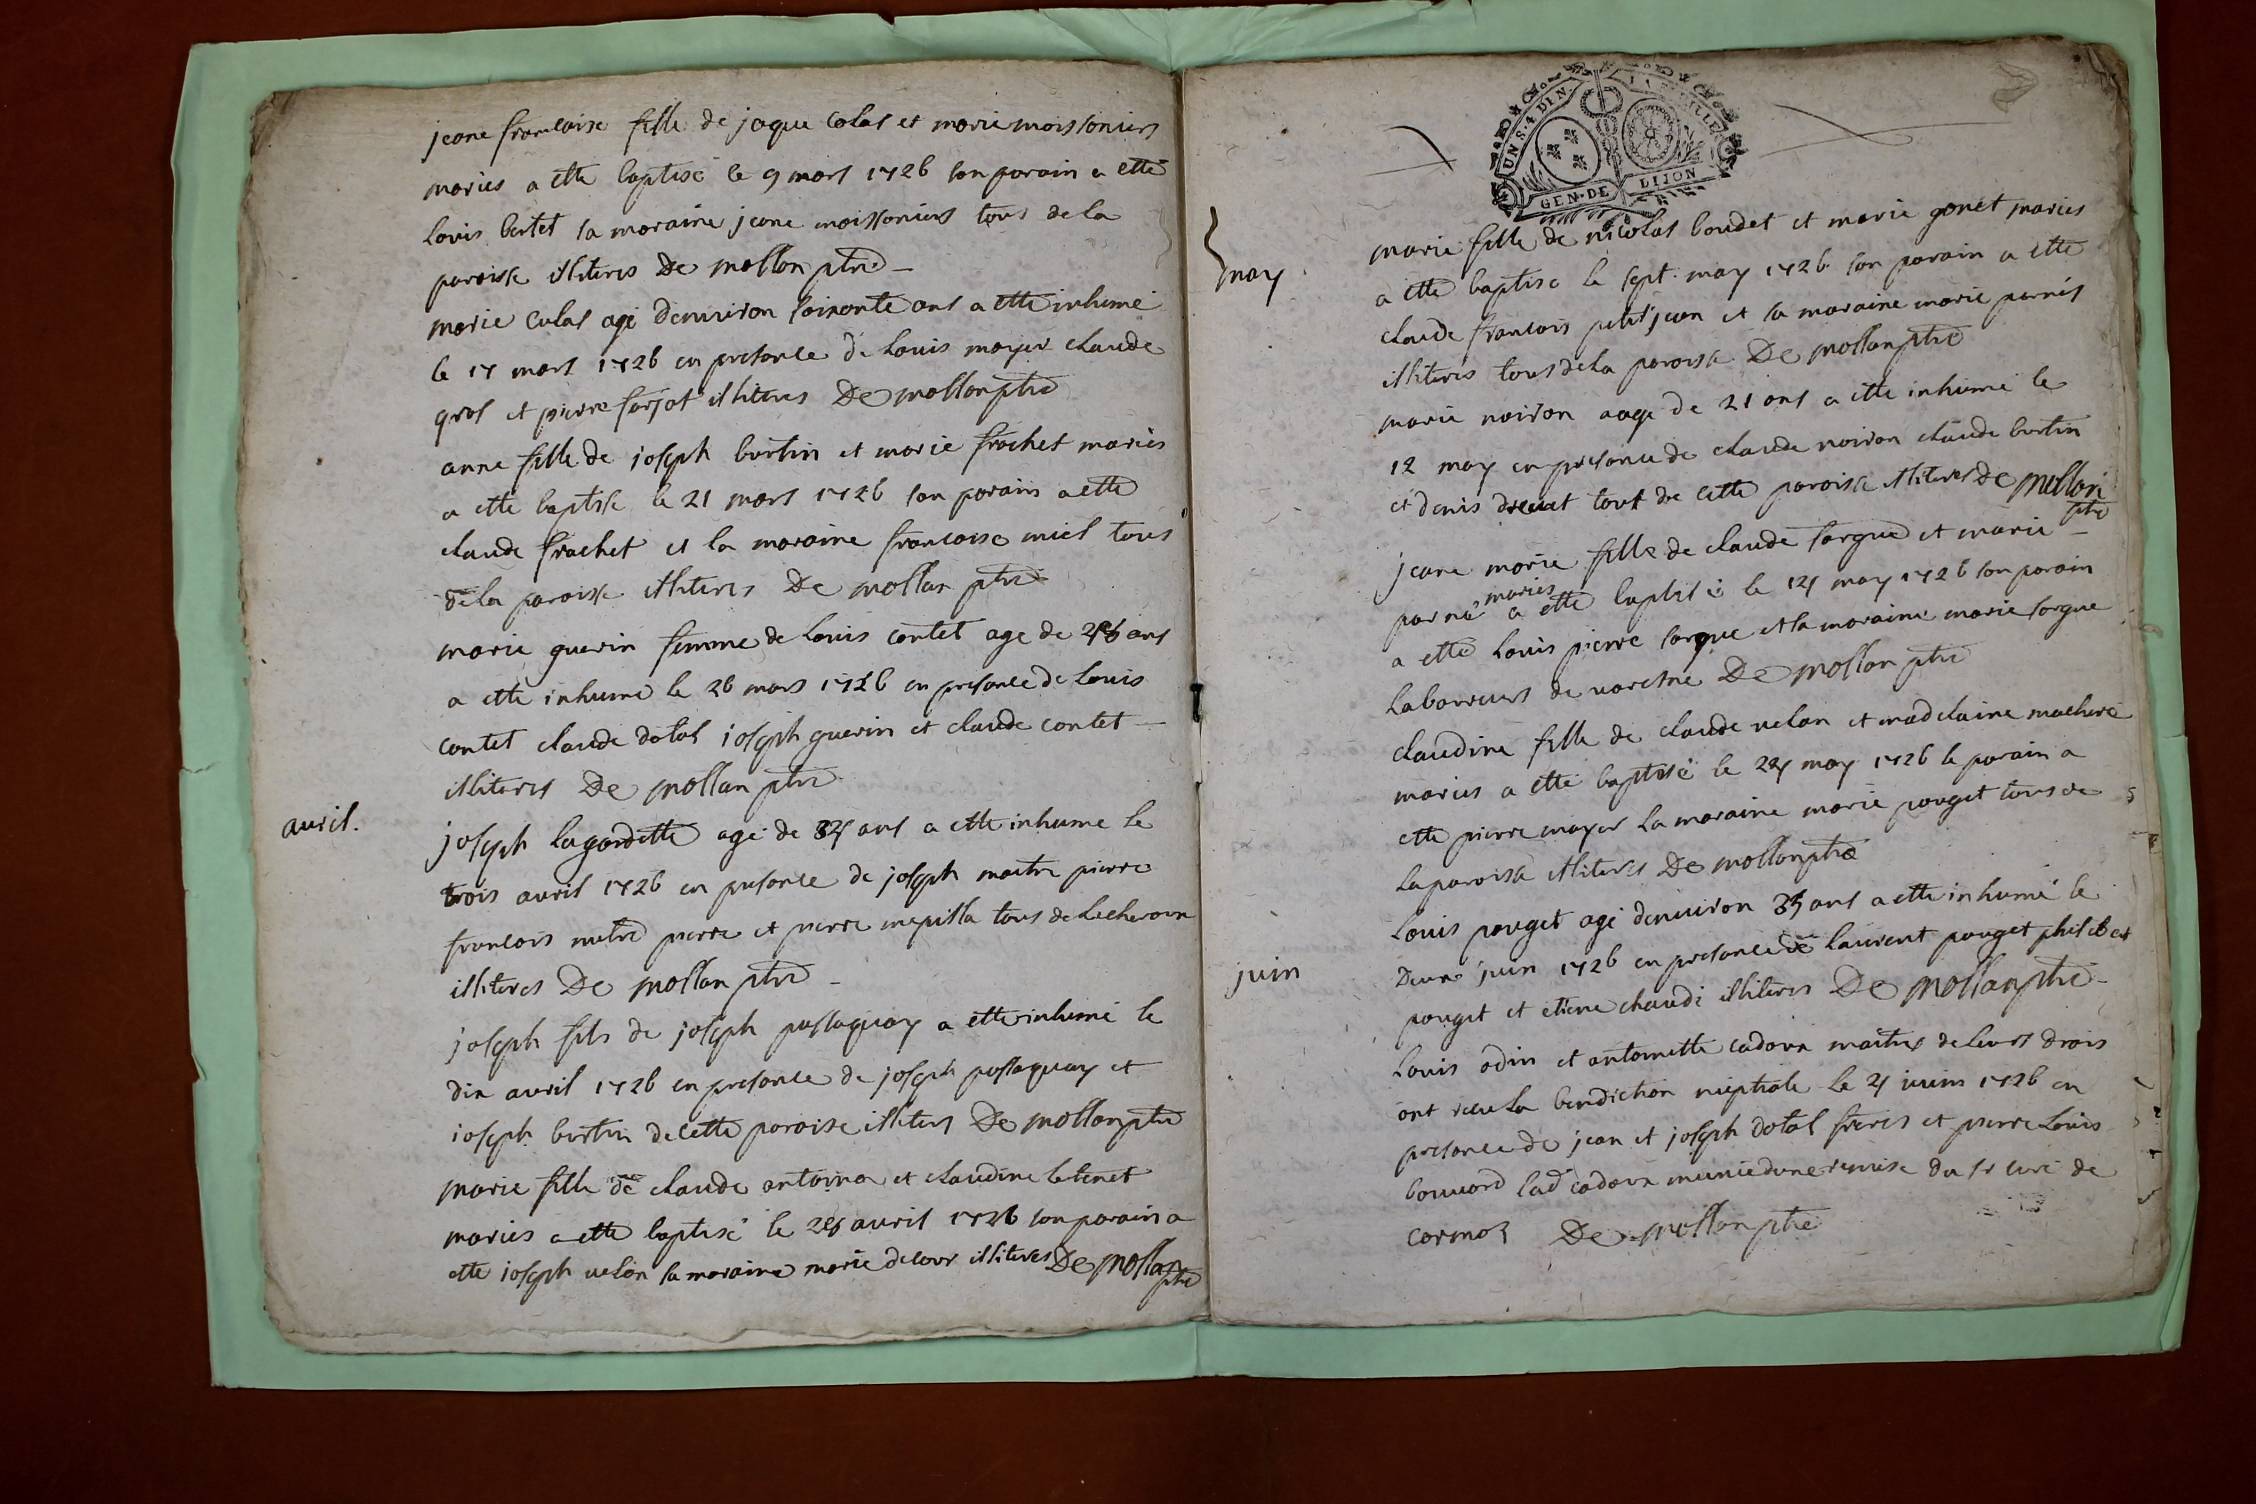 jeane francoise fille de jaque Colas et marie moissoniers
maries a ette baptisé le 9 mars 1726 son parain a etté
Louis bertet sa maraine jeane moissoniers tous de la
paroisse illiteres De mollan ptre
marie Culas agé denuiron soixante ans a etté inhumé
le 17 mars 1726 en presance de Louis mayer claude
gros et pierre farjat illiteres De mollan ptre
anne fille de joseph bertin et marie frachet mariés
a ette baptisse le 21 mars 1726 son parain a ette
claude frachet et la maraine francoise miel tous
de la paroisse illiteres De mollan ptre
marie guerin femme de Louis contet age de ans
a ette inhumé le 26 mars 1726 en presance de Louis
contet claude dotal joseph guerin et claude contet
illiteres De mollan ptre
auril.
joseph lagardette agé de ans a ette inhume le
trois auril 1726 en presance de joseph maitre pierre
francois pierre et pierre tous de
illiteres De mollan ptre
joseph fils de joseph passaquay a ette inhumé le
dix auril 1726 en presance de joseph passaquay et
joseph bertin de cette paroise illiters De mollan ptre
marie fille de claude antoina et claudine letenet
maries a ette baptisé le auril 1726 son parain a
ette joseph uelon sa maraine marie delour illiteres De mollan
ptre
UN S. 4 DEN.
GEN. DE DIJON
may
marie fille de nicolas boudet et marie gonet maries
a ette baptisé le sept may 1726 son parain a ette
claude francois petitjean et sa maraine marie parnis
illiteres tous de la paroisse De mollan ptre
marie noiron aagé de 21 ans a ette inhumé le
12 may en presance de claude noiron claude bertin
et denis drevet tout de cette paroisse illiteres De mollan
ptre
jeane marie fille de claude sorgue et marie
parné maries a ette baptisé le may 1726 son parain
a etté Louis pierre sorgue et la maraine marie sorgue
Laboureurs de De mollan ptre
claudine fille de claude uelon et madelaine macheré
maries a etté baptisé le may 1726 le parain a
ette pierre mayer La maraine marie pouget tous de
La paroisse illiteres De mollan ptre
juin
Louis pouget agé denuiron ans a ette inhumé le
Deux juin 1726 en presance de laurent pouget philibert
pouget et etiene chaudi illiteres De mollan ptre
Louis odin et antoinette cadoux maitres de leurs drois
ont receu la benediction nuptiale Le juin 1726 en
presance de jean et joseph dotal freres et pierre Louis
bouuard lad cadoux munie dune remise du sr curé de
cormoz De mollan ptre